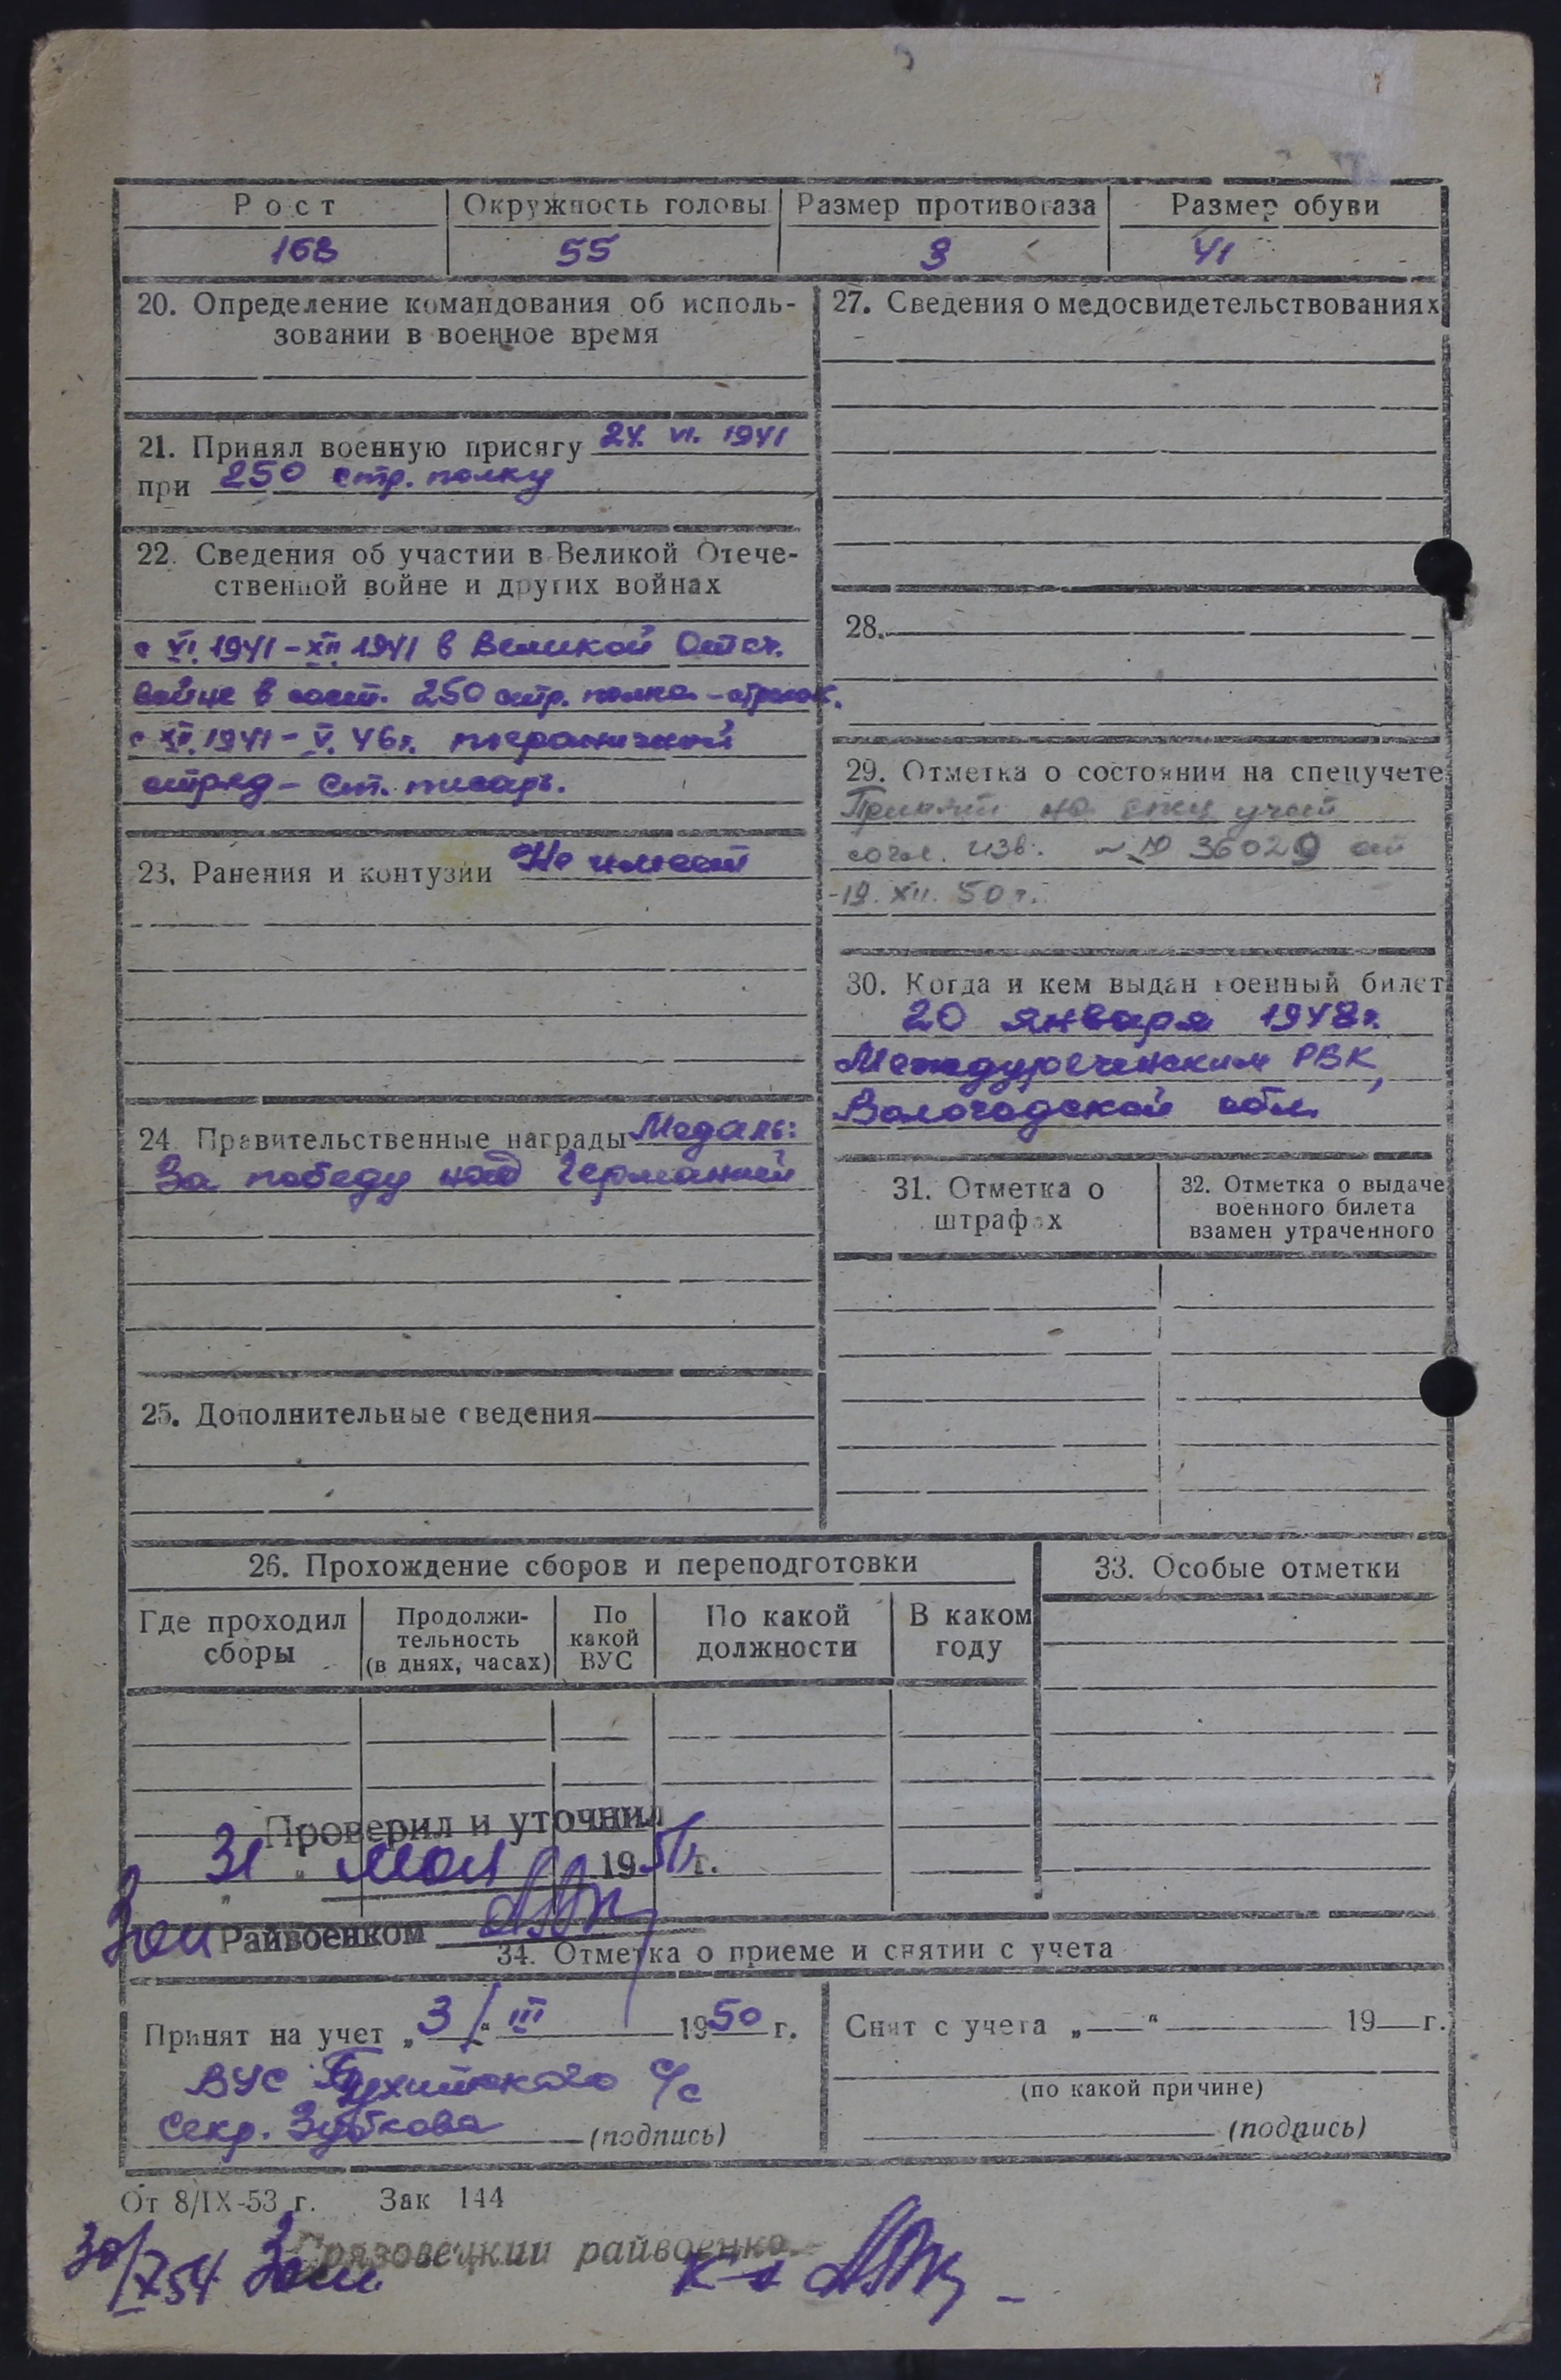 Рост Окружность головы Размер противогаза Размер обуви
168 55 3 41
20. Определение командования об исполь-
зовании в военное время
21. Принял военную присягу 24. VI. 1941
при 250 стр. полку
22. Сведения об участии в Великой Отече-
ственной войне и других войнах
с VI. 1941 - XII. 1941 в Великой Отеч.
войне в сост. 250 стр. полка - стрелок.
с XII. 1941 - V. 46 г. пограничной
отряд - Ст. писарь.
23. Ранения и контузии Не имеет
24. Правительственные награды Медаль:
За победу над Германией
25. Дополнительные сведения
27. Сведения о медосвидетельствованиях
28.
29. Отметка о состоянии на спецучете
Принят на спец учет
согл. изв. № 36029 от
19. XII. 50 г.
30. Когда и кем выдан военный билет
20 января 1948 г.
Междуреченским РВК,
Вологодской обл.
31. Отметка о
штрафах
32. Отметка о выдаче
военного билета
взамен утраченного
26. Прохождение сборов и переподготовки
Где проходил
сборы
Продолжи-
тельность
(в днях, часах)
По
какой
ВУС
По какой
должности
В каком
году
33. Особые отметки
Проверил и уточнил
31 мая 1954 г.
Райвоенком
34. Отметка о приеме и снятии с учета
Принят на учет „3/" III 1950 г.
ВУС с/с
Секр. Зубкова (подпись)
Снят с учета „ " 19 г.
(по какой причине)
(подпись)
От 8/IX-53 г. Зак 144
Грязовецкий райвоенко